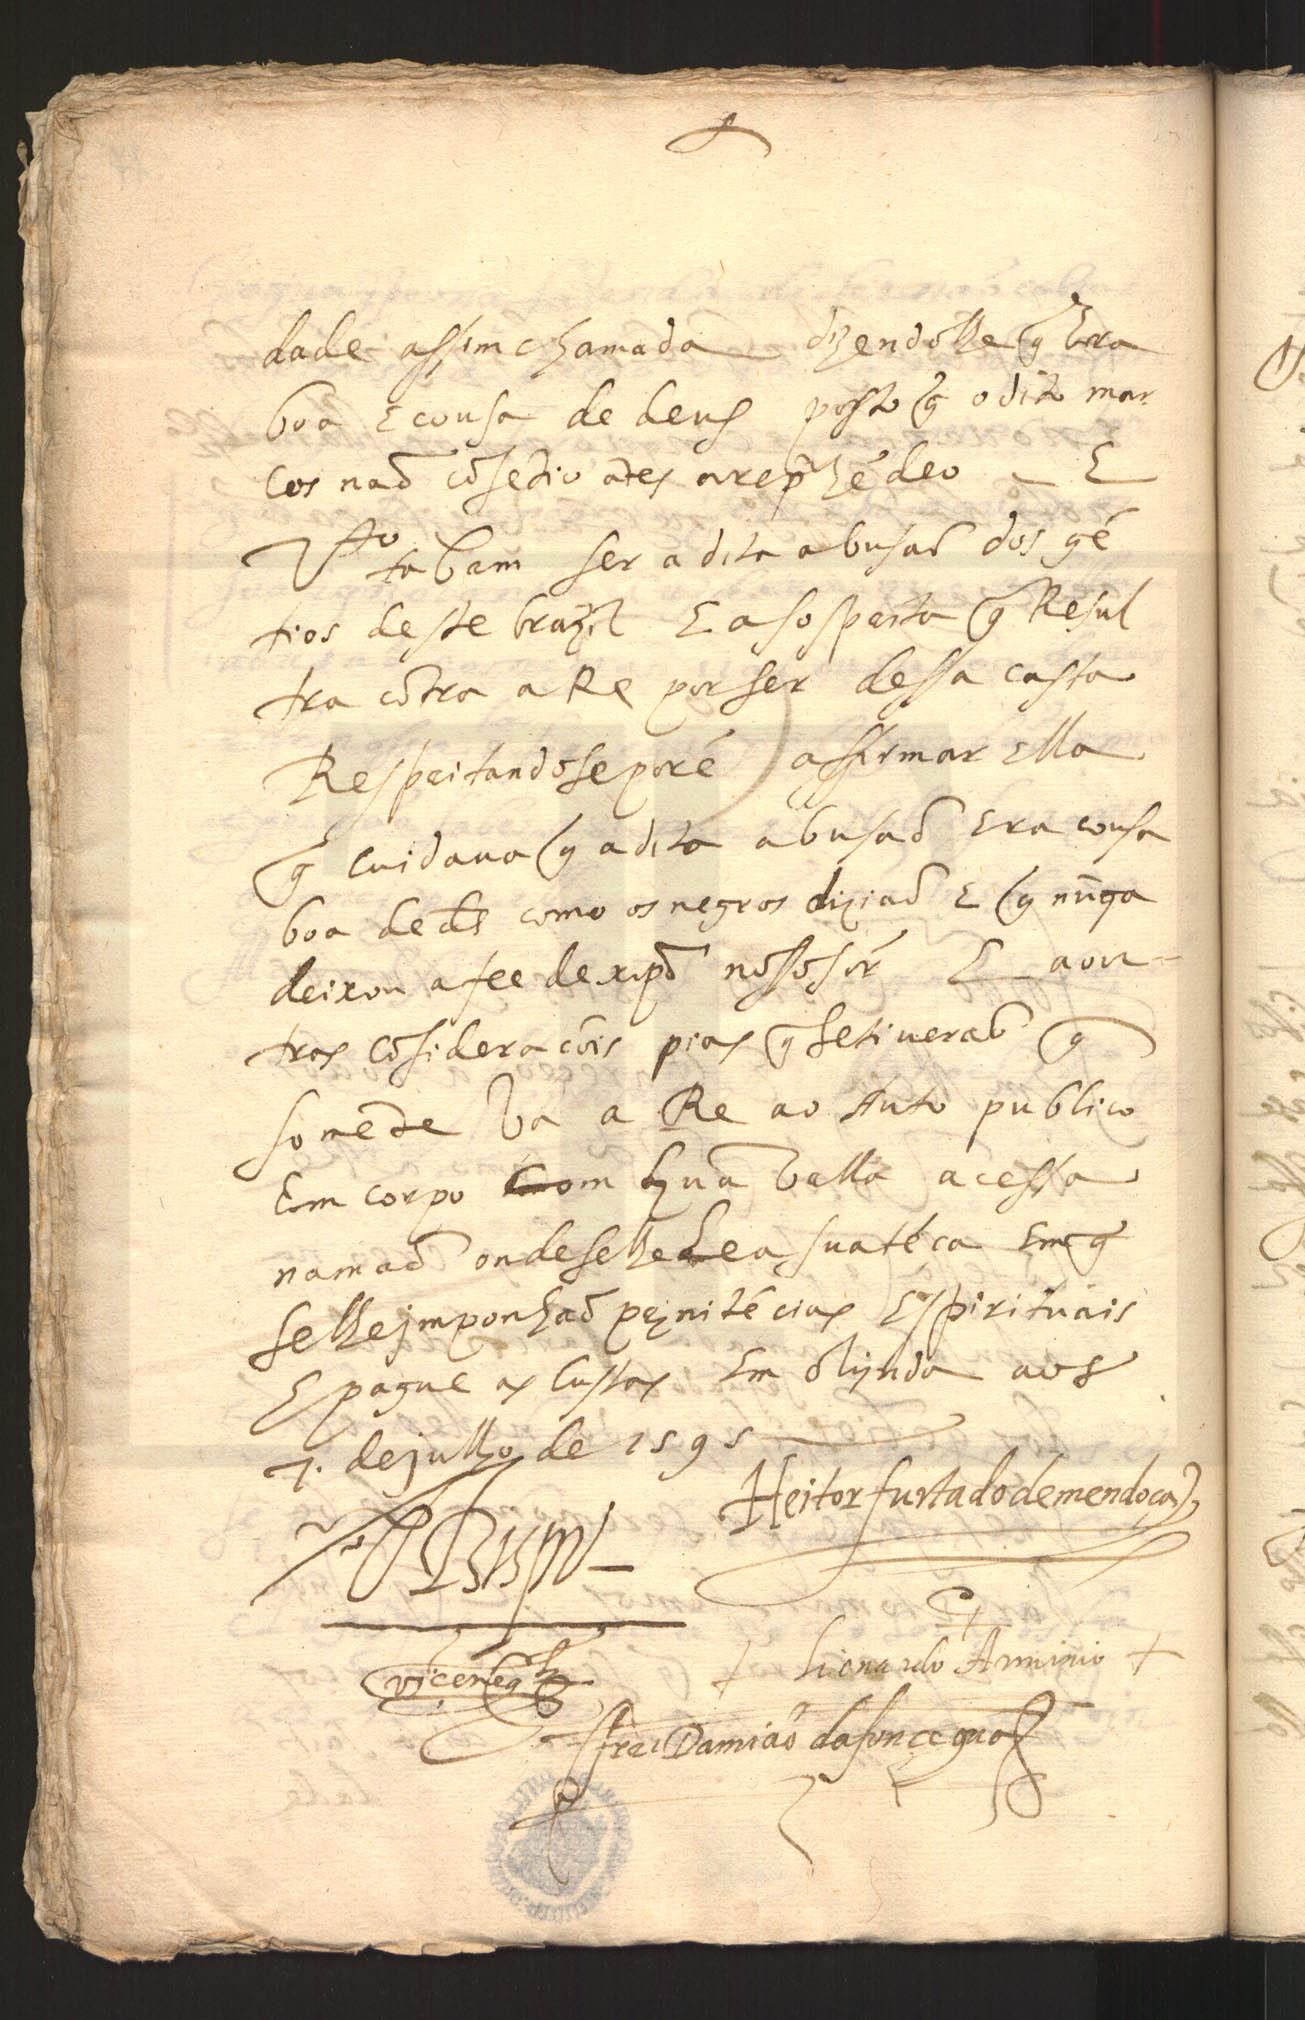 dade assim chamada dizendolhe q̃ era
boa E cousa de deus posto q̃ o dito mar
cos naõ cõsetio ãtes a rep̃hẽdeo E
Vto tabam ser a dita abusaõ dos gẽ
tios deste brazil E a sospeita q̃ Resul
tra cõtra a Re por ser dessa casta
Respeitandose porẽ affirmar Ella
q̃ cuidaua q̃ a dita abusaõ Era cousa
boa de ds como os negros diziaõ E q̃ nũqa
deixou a fee de xp̃o nosso sõr E a ou-
tras cõsideracõis pias q̃ se tiueraõ q̃
somẽte Va a Re ao Auto publico
Em corpo Com hũa vella acessa
na maõ onde se lhe Lea sua tẽça Em q̃
se lhe jmponhaõ penitẽcias Espirituais
E pague as Custas Em õlynda aos
7. de julho de 1595
Heitor furtado de mendoça
Lionardo Arminio
vicente gz
frei Damiaõ da foncequa